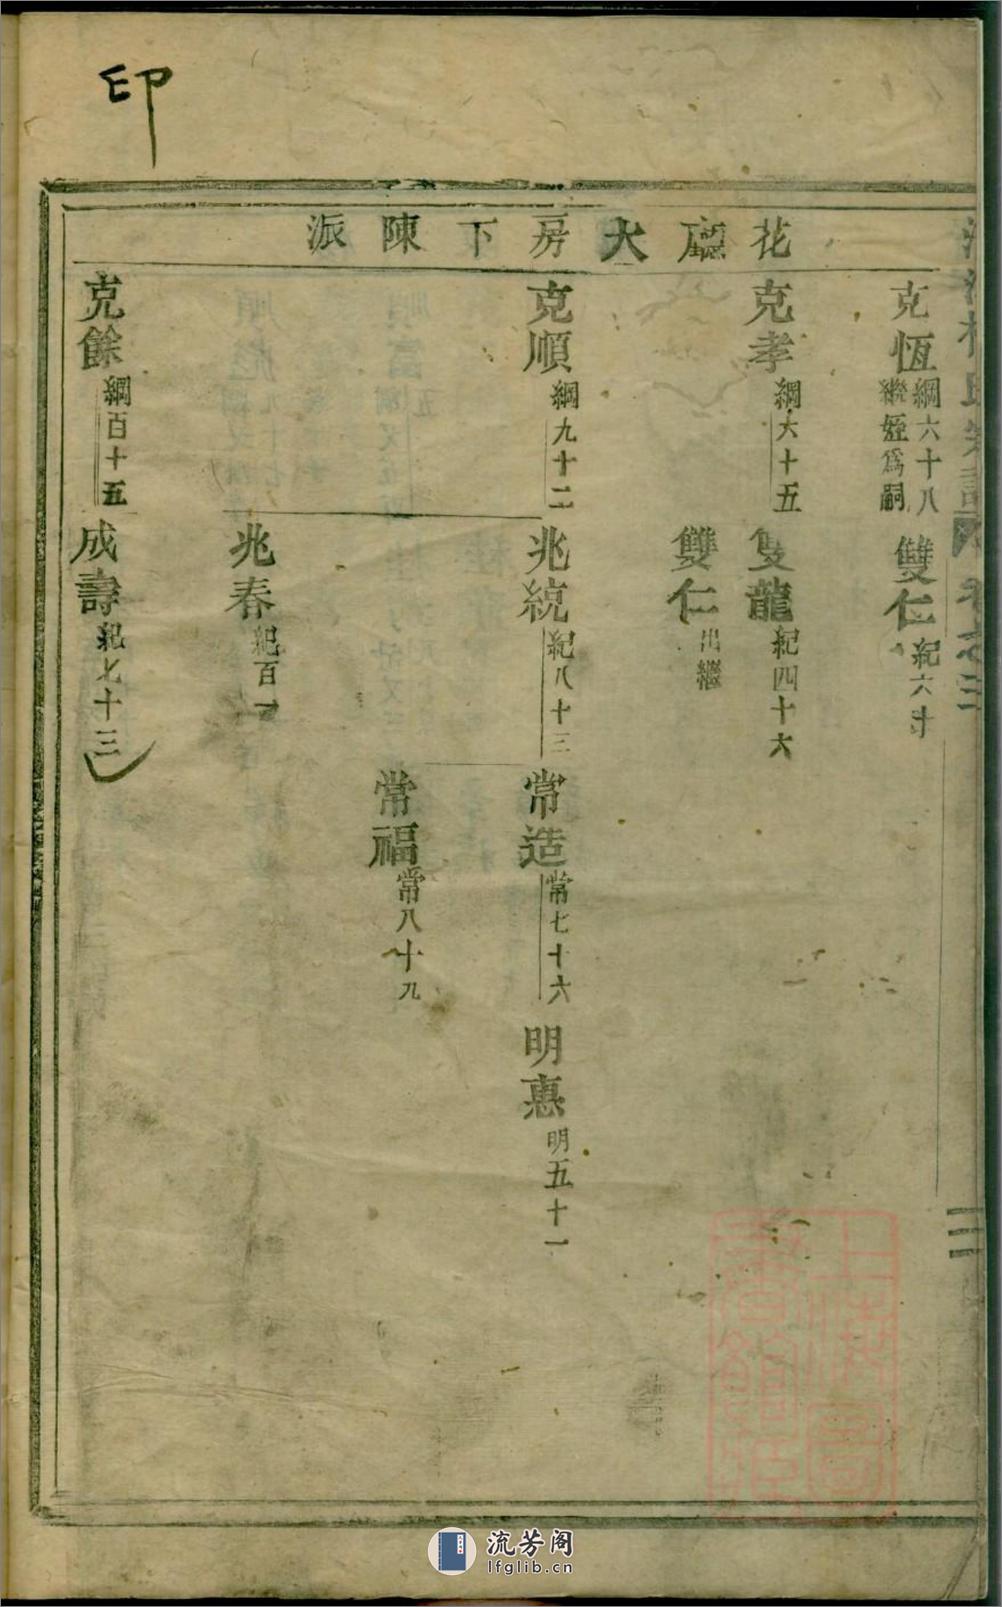 印
花廳大房下陳派
克恆 綱六十八
繼姪爲嗣
雙仁 紀六十
克孝 綱六十五
雙龍 紀四十六
雙仁 出繼
克順 綱九十二
兆統 紀八十三
常造 常七十六
明惠 明五十一
常福 常八十九
兆春 紀百
克餘 綱百十五
成壽 紀七十三
卷之三
三
上海圖書館藏
流芳阁
lfglib.cn